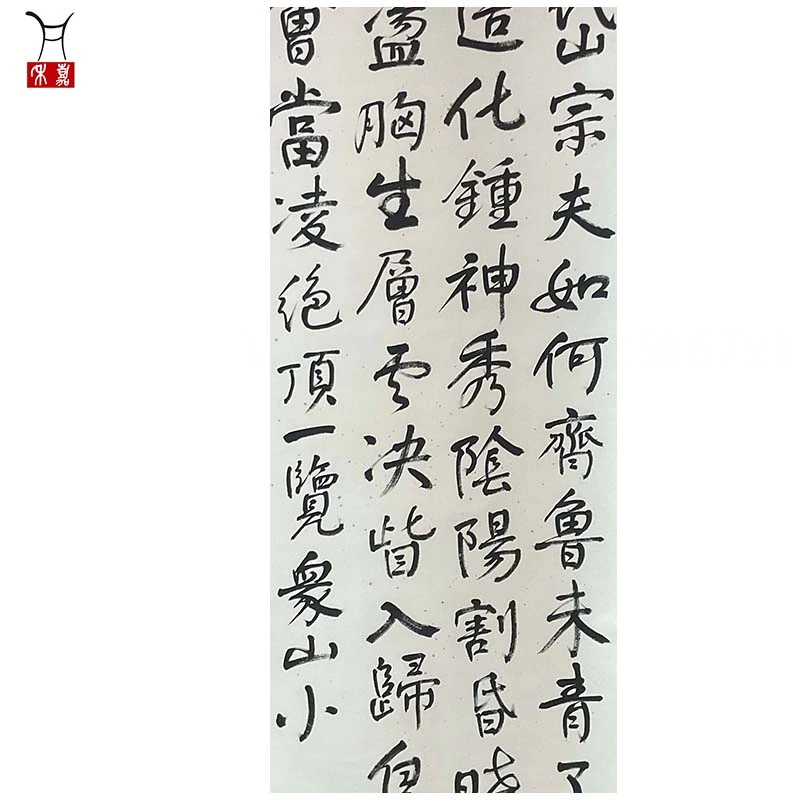 岱宗夫如何齊魯未青了
造化鍾神秀陰陽割昏
盪胸生層云决眥入歸
會當凌絕頂一覽眾山小